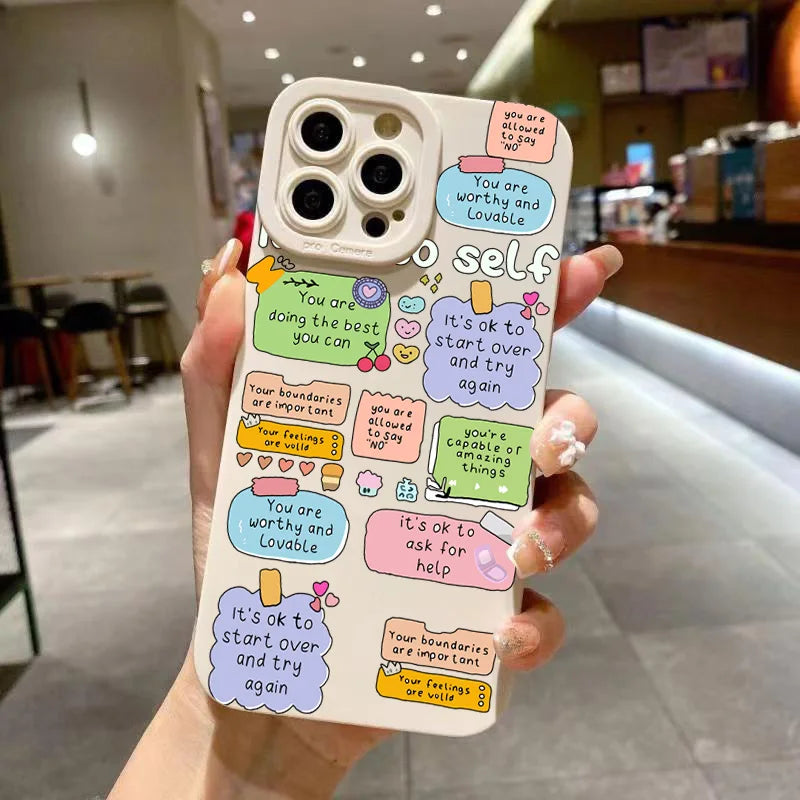 you are
allowed
to say
"NO"
You are
worthy and
Lovable
pro Camera
to self
You are
doing the best
you can
It's ok to
start over
and try
again
Your boundaries
are important
Your feelings
are valid
you are
allowed
to say
"NO"
you're
capable of
amazing
things
You are
worthy and
Lovable
it's ok to
ask for
help
It's ok to
start over
and try
again
Your boundaries
are important
Your feelings
are valid